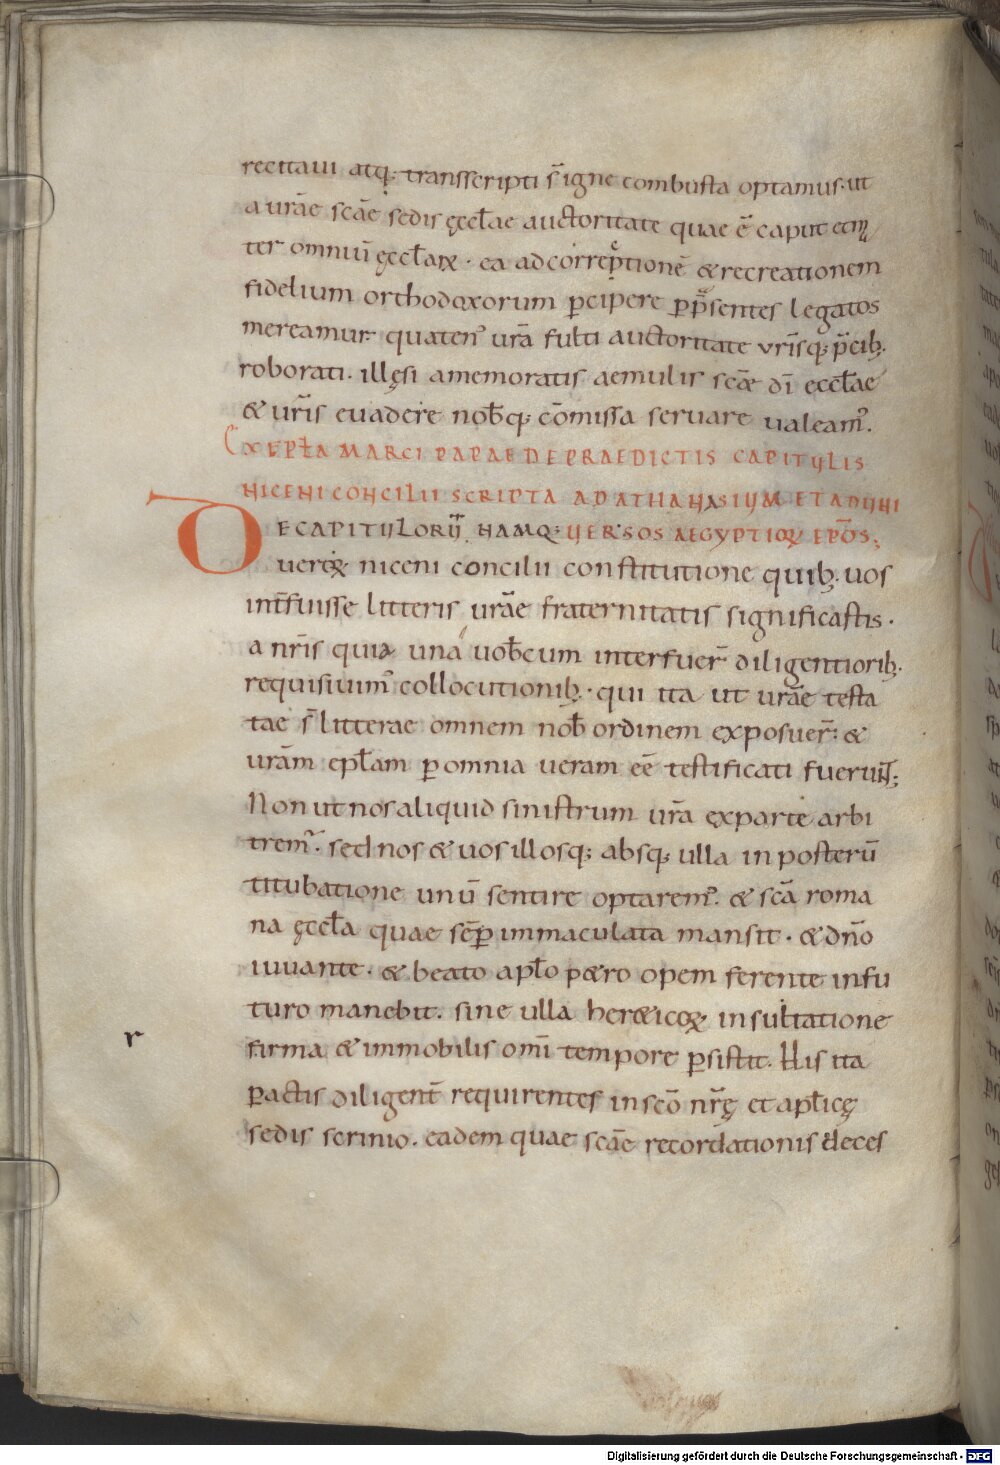 recitaui atq; transscripti s̄ igne combusta optamus. ut
a ur̄ae sc̄ae sedis ęccl̄ae auctoritate quae ē caput et m̄
ter omniū ęccl̄aꝝ. ea ad correptionē & recreationem
fidelium orthodoxorum ꝑcipere ꝑ p̄sentes legatos
mereamur. quaten᾿ ur̄a fulti auctoritate vr̄isq; p̄cib;.
roborati. illęsi a memoratis aemulis sc̄ae dī eccl̄ae
& ur̄is euadere nob̄q; cōmissa seruare ualeam᾿.
EXEPL̄A MARCI PAPAE DE PRAEDICTIS CAPITULIS
NICENI CONCILII SCRIPTA AD ATHANASIUM ET AD UNI
DE CAPITULORŪ NAMQ; UERSOS AEGYPTIOꝜ EP̄OS;
ueroꝝ niceni concilii constitutione quib; uos
int̄fuisse litteris ur̄ae fraternitatis significastis.
a nr̄is quia una uob̄cum interfuer̄ diligentiorib;.
requisiuim᾿ collocutionib;. qui ita ut ur̄ae testa
tae s̄ litterae omnem nob̄ ordinem exposuer̄. &
ur̄am epl̄am ꝑ omnia ueram eē testificati fuerunt;
Non ut nos aliquid sinistrum ur̄a ex parte arbi
trem᾿. sed nos & uos illosq; absq; ulla in posterū
titubatione unū sentire optarem᾿. & sc̄a roma
na ęccl̄a quae sēꝑ immaculata mansit. & dn̄o
iuuante. & beato apl̄o p&ro opem ferente in fu
turo manebit. sine ulla her&icoꝝ insultatione
firma & immobilis omī tempore ꝑsistit. His ita
ꝑactis diligent̄ requirentes in sc̄o nr̄ę et apl̄icę
r
sedis scrinio. eadem quae sc̄ae recordationis deces
Digitalisierung gefördert durch die Deutsche Forschungsgemeinschaft - DFG